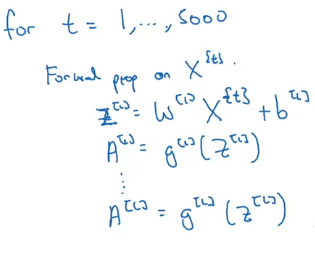 for t = 1,...,5000
Forward prop on X^{t}.
Z^[1] = W^[1] X^{t} + b^[1]
A^[1] = g^[1](Z^[1])
⋮
A^[L] = g^[L](Z^[L])